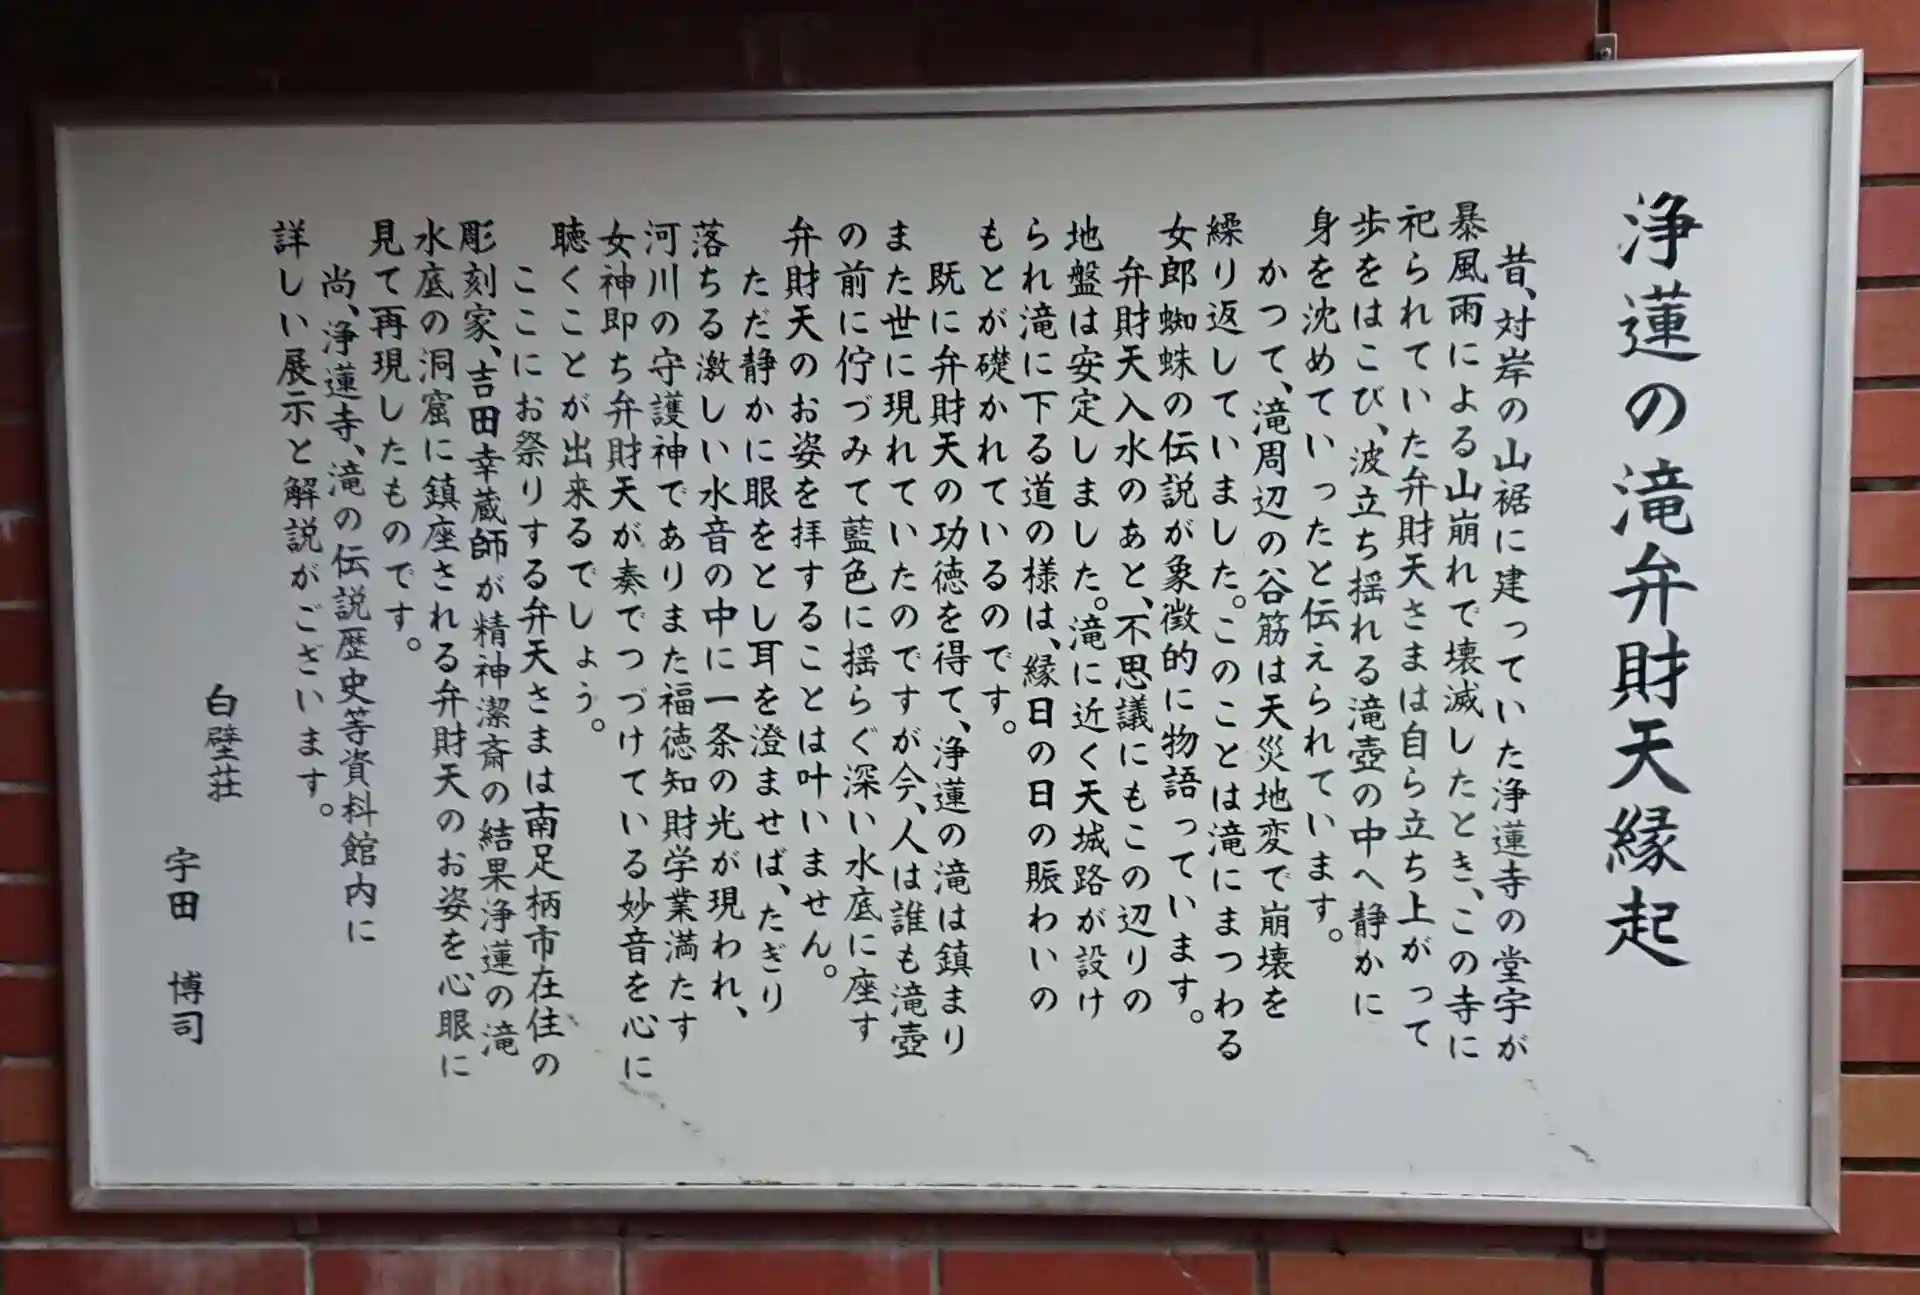 浄蓮の滝弁財天縁起
昔、対岸の山裾に建っていた浄蓮寺の堂宇が
暴風雨による山崩れで壊滅したとき、この寺に
祀られていた弁財天さまは自ら立ち上がって
歩をはこび、波立ち揺れる滝壺の中へ静かに
身を沈めていったと伝えられています。
かつて、滝周辺の谷筋は天災地変で崩壊を
繰り返していました。このことは滝にまつわる
女郎蜘蛛の伝説が象徴的に物語っています。
弁財天入水のあと、不思議にもこの辺りの
地盤は安定しました。滝に近く天城路が設け
られ滝に下る道の様は、縁日の日の賑わいの
もとが礎かれているのです。
既に弁財天の功徳を得て、浄蓮の滝は鎮まり
また世に現れていたのですが今、人は誰も滝壺
の前に佇づみて藍色に揺らぐ深い水底に座す
弁財天のお姿を拝することは叶いません。
ただ静かに眼をとし耳を澄ませば、たぎり
落ちる激しい水音の中に一条の光が現われ、
河川の守護神でありまた福徳知財学業満たす
女神即ち弁財天が奏でつづけている妙音を心に
聴くことが出来るでしょう。
ここにお祭りする弁天さまは南足柄市在住の
彫刻家、吉田幸蔵師が精神潔斎の結果浄蓮の滝
水底の洞窟に鎮座される弁財天のお姿を心眼に
見て再現したものです。
尚、浄蓮寺、滝の伝説歴史等資料館内に
詳しい展示と解説がございます。
白壁荘
宇田　博司